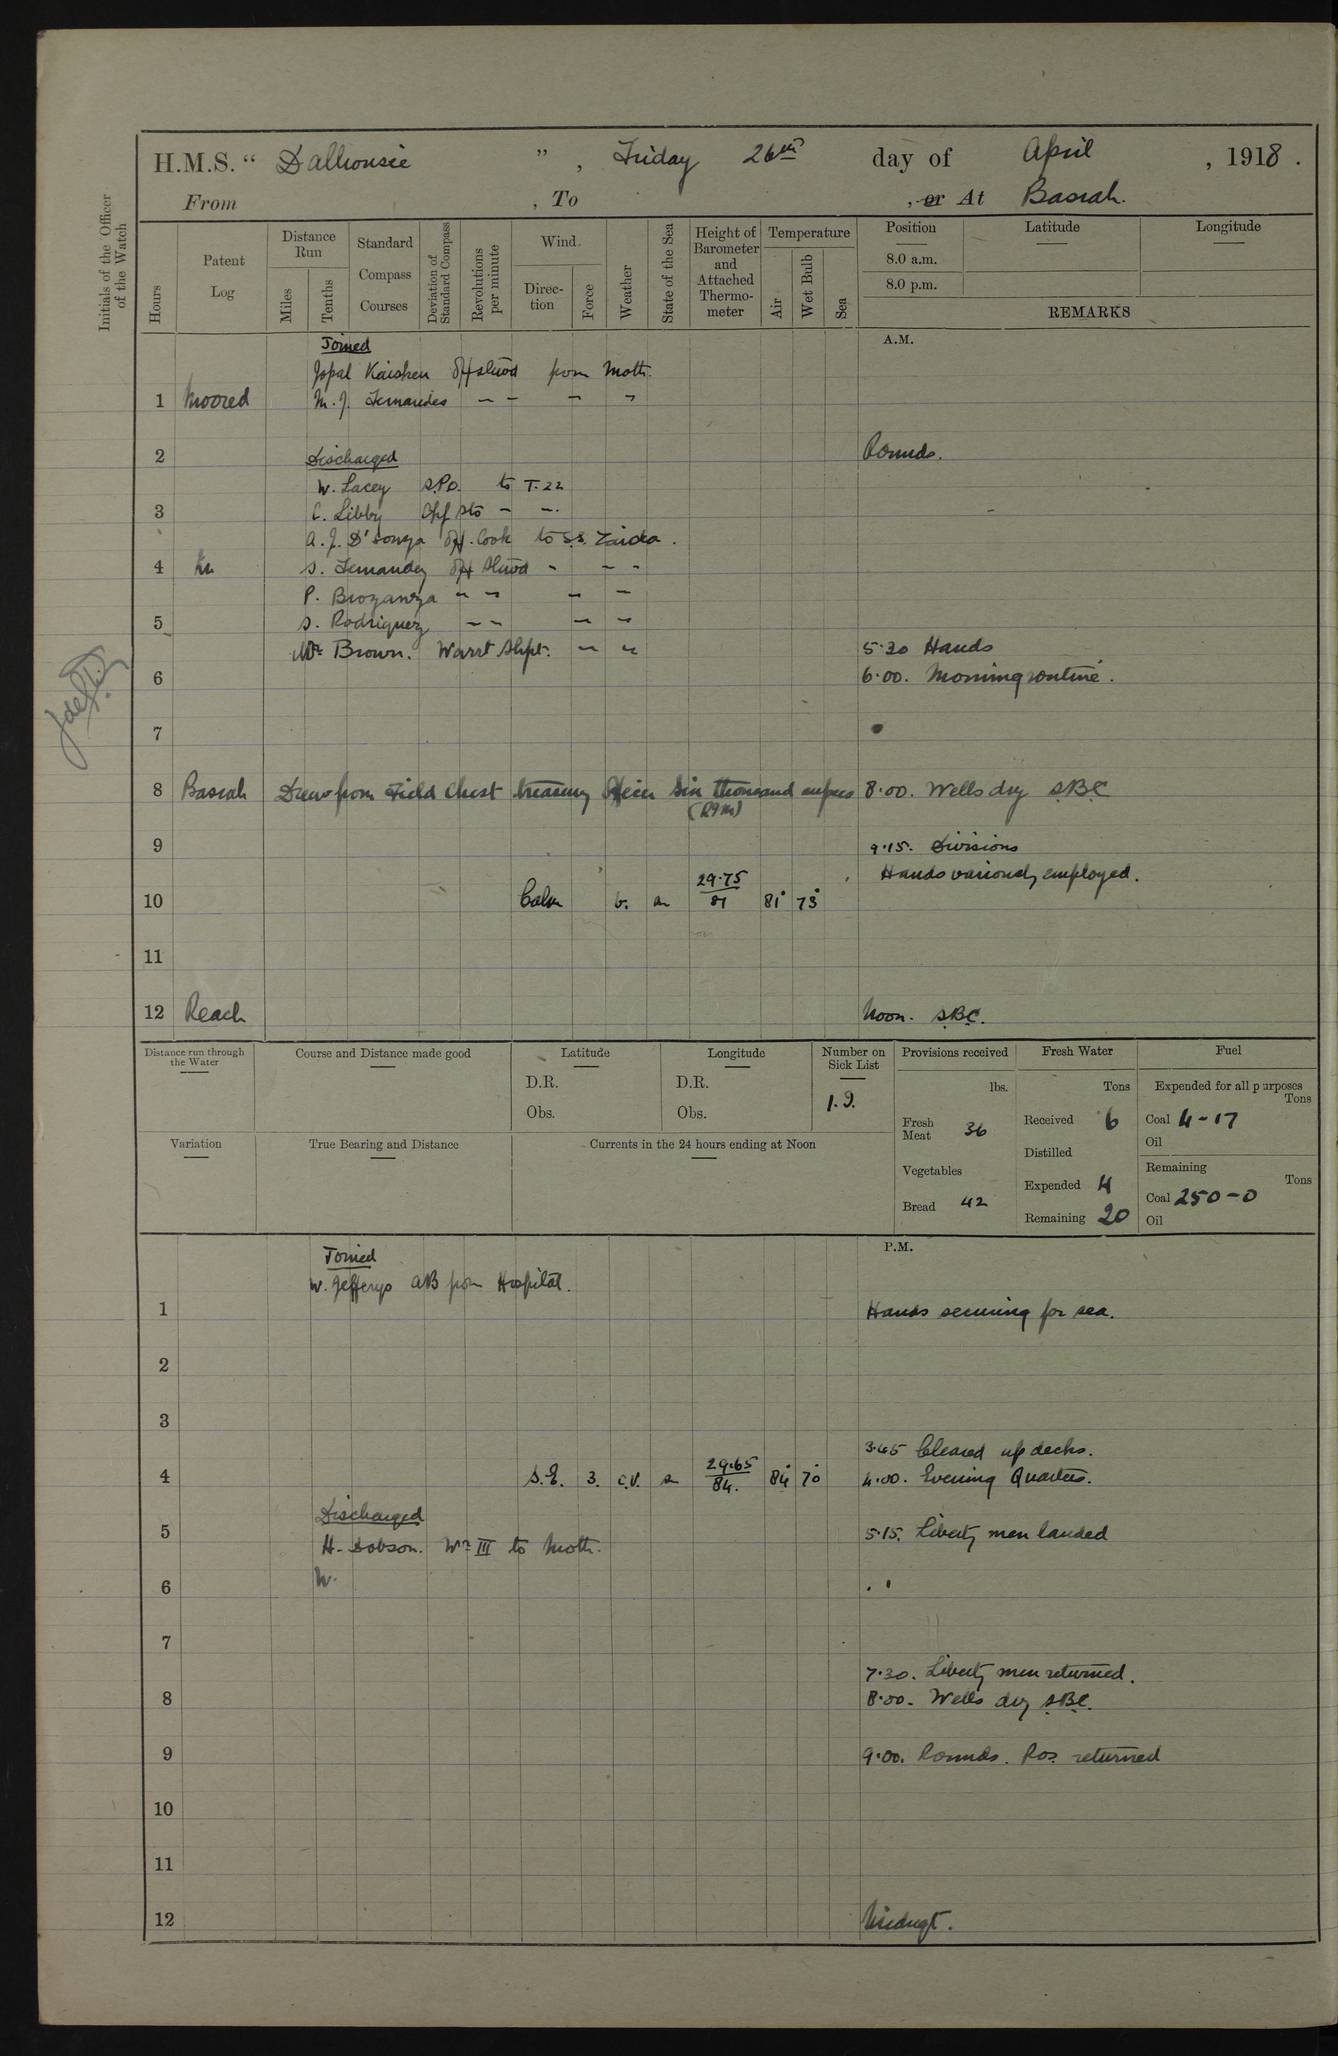 H.M.S. “ Dalhousie ” , Friday 26th day of April , 1918 .
From , To , or At Basrah.
Initials of the Officer of the Watch
Hours
Patent Log
Distance Run
Miles
Tenths
Standard Compass Courses
Deviation of Standard Compass
Revolutions per minute
Wind
Direction
Force
Weather
State of the Sea
Height of Barometer and Attached Thermometer
Temperature
Air
Wet Bulb
Sea
Position
8.0 a.m.
8.0 p.m.
Latitude
Longitude
REMARKS
A.M.
Joined
Kaishen from Moth.
1 Moored M.J. Fernandes – – – "
2 Discharged Rounds.
W. Lacey S.P.O. to T.22
3 C. Libby Off Sto – –
A.J. D'Souza Off. Cook to S.S. Zaida.
4 In S. Fernandez Off Stwd – – –
P. – – – –
5 S. Rodriguez – – – –
Mr Brown. Warrt Shpt. – – 5.30 Hands
6 6.00. Morning routine.
7
8 Basrah Drew from Field Chest treasury Officer Six thousand rupees 8.00. Wells dry S.B.C
9 9.15. Divisions
Hands variously employed.
10 Calm b. 29.75 / 81 81° 73°
11
12 Reach Noon. S.B.C.
Distance run through the Water
Course and Distance made good
Latitude
D.R.
Obs.
Longitude
D.R.
Obs.
Number on Sick List
1.9.
Variation
True Bearing and Distance
Currents in the 24 hours ending at Noon
Provisions received
lbs.
Fresh Meat 36
Vegetables
Bread 42
Fresh Water
Tons
Received 6
Distilled
Expended 4
Remaining 20
Fuel
Expended for all purposes
Tons
Coal 4-17
Oil
Remaining
Tons
Coal 250-0
Oil
P.M.
Joined
W. Jefferys AB from Hospital.
1 Hands securing for sea.
2
3
3.45 Cleared up decks.
4 S.E. 3. c.v. 29.65 / 84. 84° 70° 4.00. Evening Quarters.
Discharged
5 5.15. Liberty men landed
H. Dobson. Wr III to Moth.
6 W.
7
7.30. Liberty men returned.
8 8.00. Wells dry S.B.C.
9 9.00. Rounds. P.O's. returned
10
11
12 Midngt.